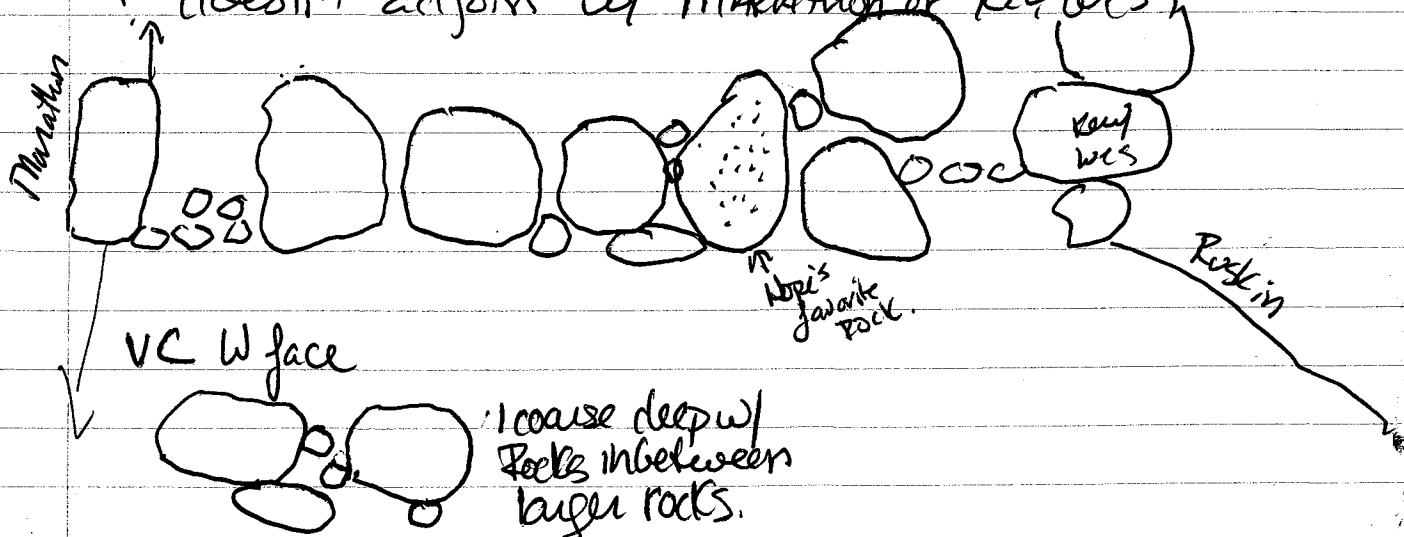 doesn't adjoin w/ Marathon or Key Wes
Marathon
Key
Wes
Ruskin
Nope's
favorite
rock.
VC W face
1 coarse deep w/
Rocks inbetween
larger rocks.